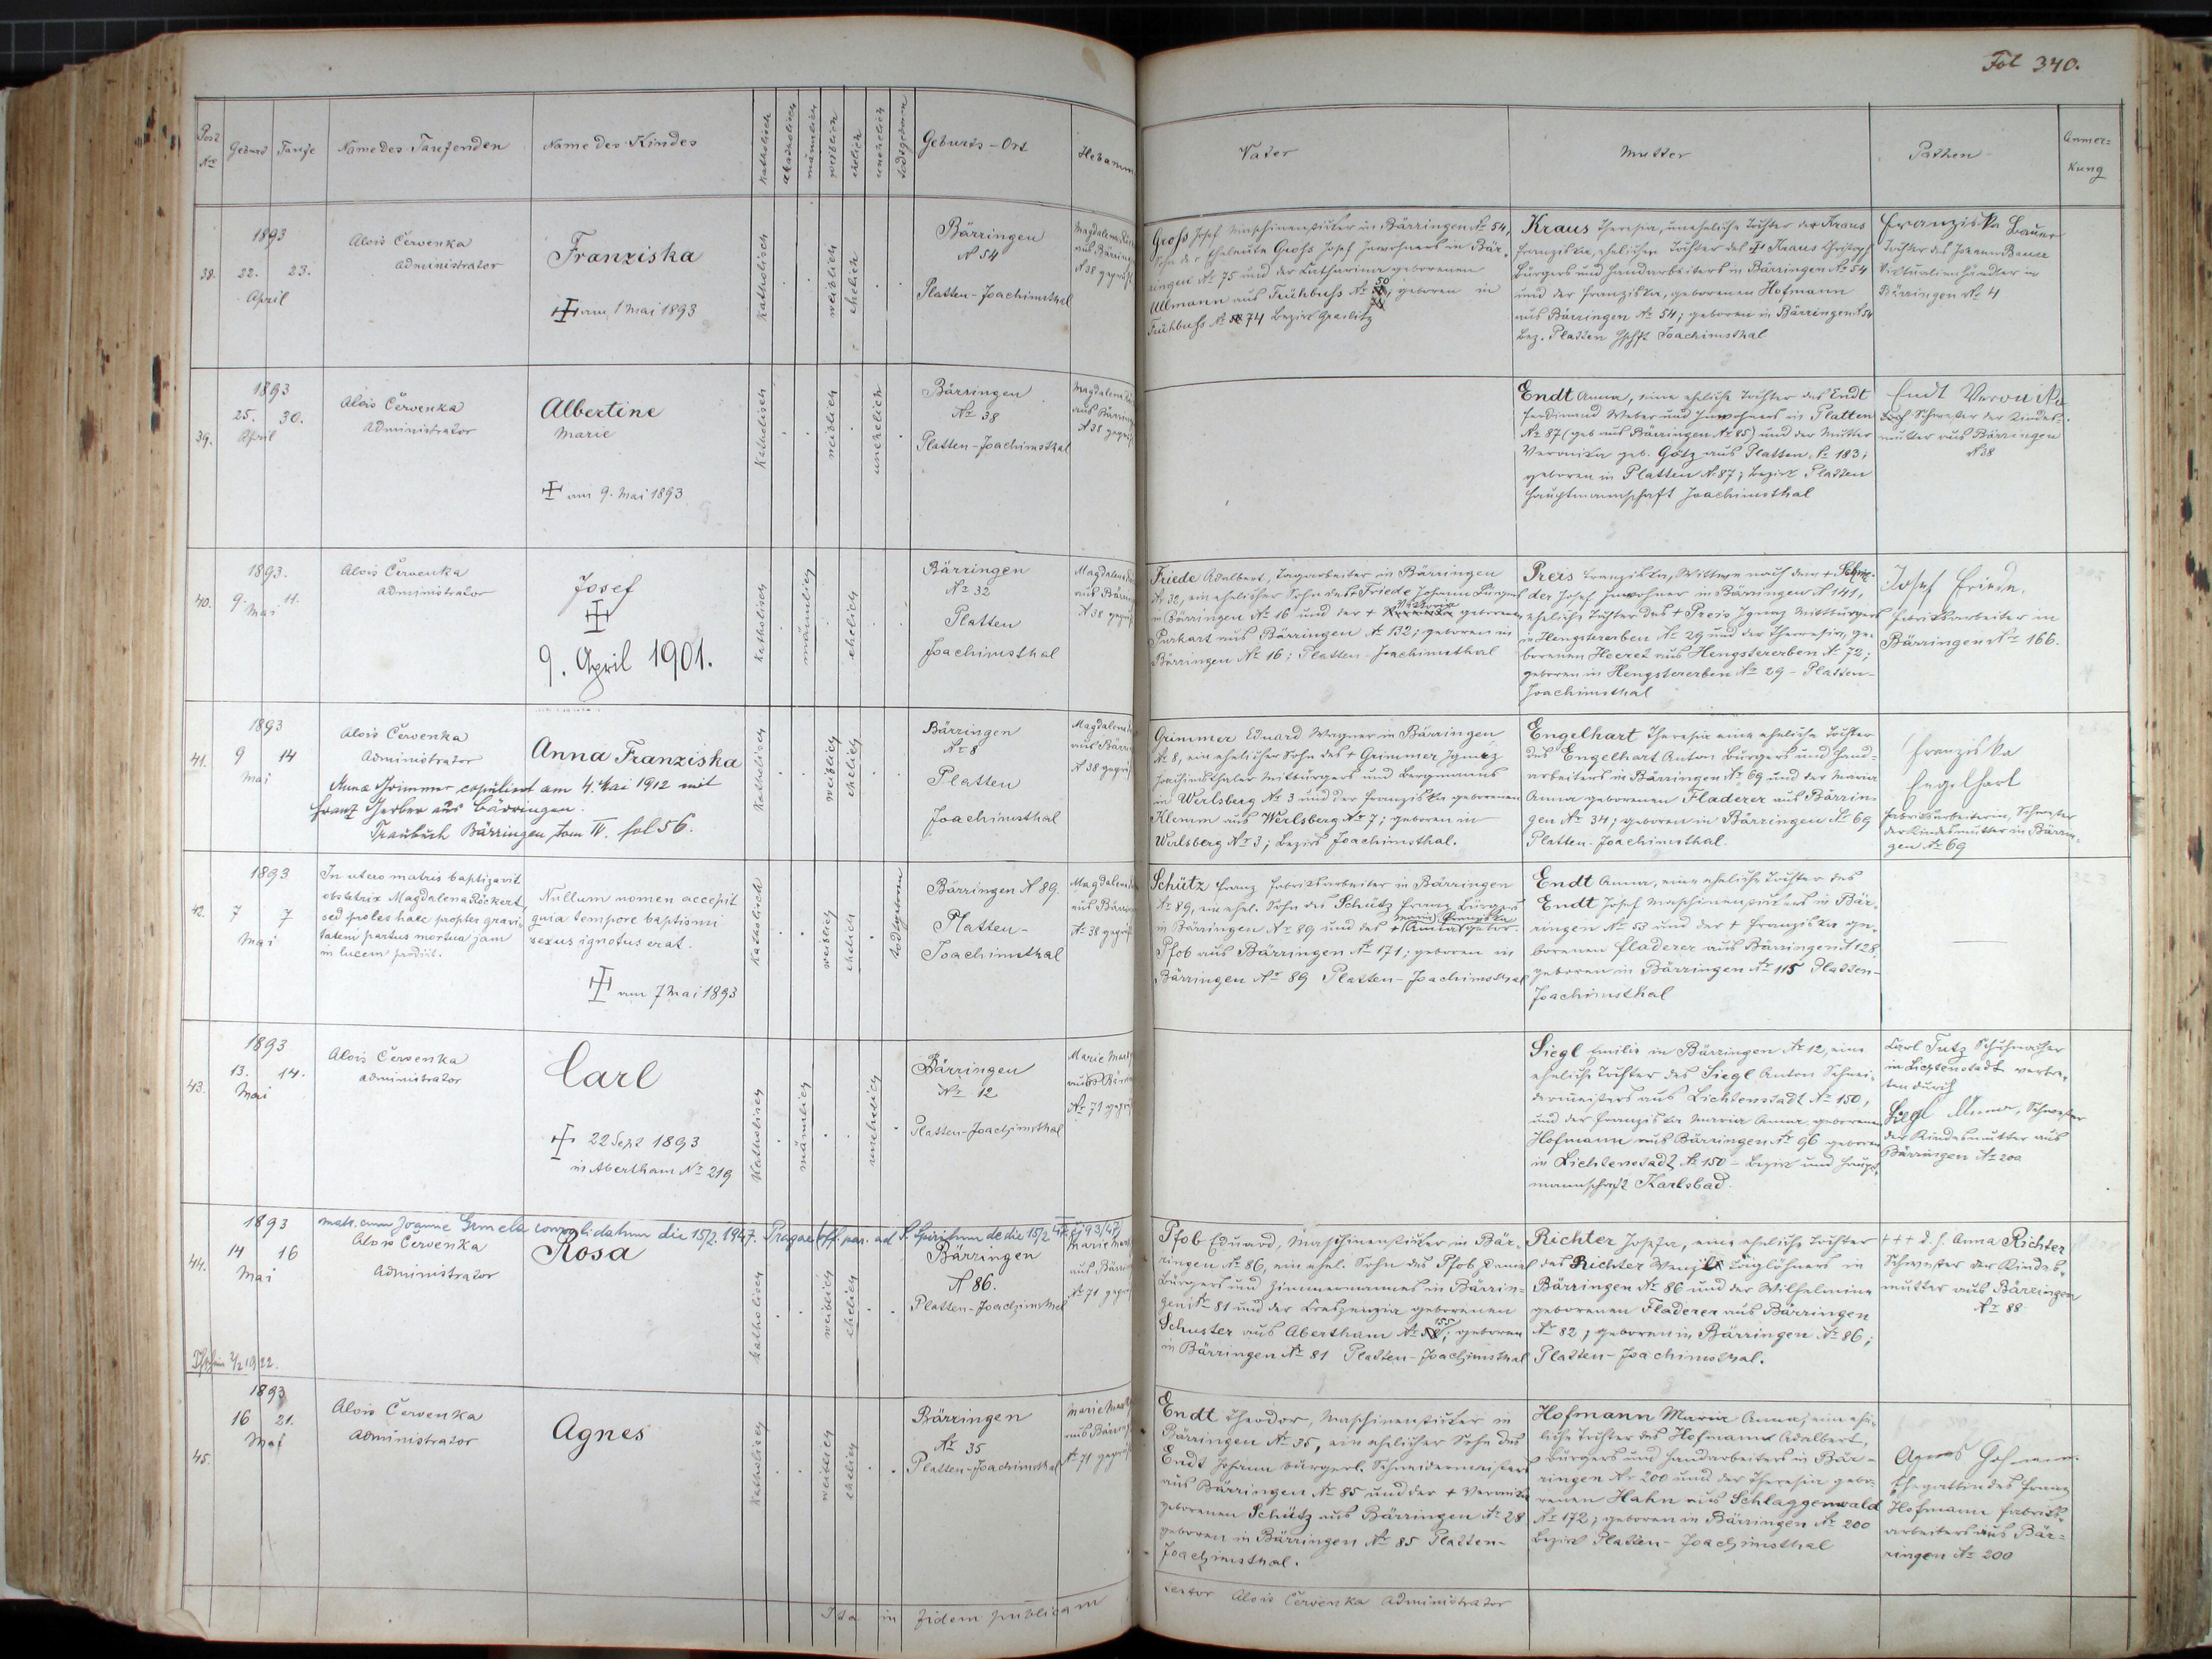 Fol 340.
Post Nro
Geburt
Taufe
Name des Taufenden
Name des Kindes
Katholisch
akatholisch
männlich
weiblich
ehelich
unehelich
todtgeboren
Geburts-Ort
Hebamm
Vater
Mutter
Pathen
Anmer=
kung
38.
1893
22. 23.
April
Alois Červenka
Administrator
Franziska
am 1 Mai 1893
Katholisch
weiblich
ehelich
Bärringen
N 54
Platten-Joachimsthal
Magdalena
aus Bärring
N 38 geprüft
Groß Josef Maschinensticker in Bärringen No 54,
Sohn der Eheleute Groß Josef Inwohners in Bär-
ringen No 75 und der Katharina geborenen
Ullmann aus Frühbuß No 50, geboren in
Frühbuß No 74 Bezirk Graslitz
Kraus Theresia, uneheliche Tochter der Kraus
Franziska, ehelichen Tochter des + Kraus Christof
Bürgers und Handarbeiters in Bärringen No 54
und der Franziska, geborenen Hofmann
aus Bärringen No 54; geboren in Bärringen N 54
Bez. Platten Hptft Joachimsthal
Franziska Bauer
Tochter des Johann Bauer
Viktualienhändler in
Bärringen No 4
39.
1893
25. 30.
April
Alois Červenka
Administrator
Albertine
Marie
am 9. Mai 1893
Katholisch
weiblich
unehelich
Bärringen
No 38
Platten-Joachimsthal
Magdalena
aus Bärring
N 38 geprüft
Endt Anna, eine eheliche Tochter des Endt
Ferdinand Weber und Inwohners in Platten
No 87 (geb aus Bärringen No 85) und der Mutter
Veronika geb. Götz aus Platten No 183;
geboren in Platten N. 87; Bezirk Platten
Hauptmannschaft Joachimsthal
Endt Veronika
Schwester der Kindes-
mutter aus Bärringen
N 38
40.
1893.
9. 11.
Mai
Alois Červenka
Administrator
Josef
9. April 1901.
Katholisch
männlich
ehelich
Bärringen
No 32
Platten
Joachimsthal
Magdalena
aus Bärring
N 38 geprüft
Friede Adalbert, Tagarbeiter in Bärringen
No 32, ein ehelicher Sohn des + Friede Johann Bürgers
in Bärringen No 16 und der + Viktoria geborenen
Purkart aus Bärringen No 132; geboren in
Bärringen No 16; Platten-Joachimsthal
Preis Franziska, Wittwe nach dem +
der Josef Inwohner in Bärringen N 141,
eheliche Tochter des + Preis Ignaz Mitbürgers
in Hengstererben No 29 und der Theresia, ge-
borenen Heeret aus Hengstererben No 72;
geboren in Hengstererben No 29 - Platten-
Joachimsthal
Josef Friede,
Fabriksarbeiter in
Bärringen No 166.
41.
1893
9 14
Mai
Alois Červenka
Administrator
Anna Franziska
Anna Grimmer copuliert am 4. Mai 1912 mit
Franz Gerber aus Bärringen.
Traubuch Bärringen tom IV. fol 56.
Katholisch
weiblich
ehelich
Bärringen
No 8
Platten
Joachimsthal
Magdalena
aus Bärring
N 38 geprüft
Grimmer Eduard Wagner in Bärringen
No 8, ein ehelicher Sohn des + Grimmer Ignatz
Joachimsthaler Mitbürgers und Bergmanns
in Werlsberg No 3 und der Franziska geborenen
Klemm aus Werlsberg No 7; geboren in
Werlsberg No 3; Bezirk Joachimsthal.
Engelhart Theresia eine eheliche Tochter
des Engelhart Anton Bürgers und Hand-
arbeiters in Bärringen No 69 und der Maria
Anna geborenen Fladerer aus Bärrin-
gen No 34; geboren in Bärringen No 69
Platten-Joachimsthal.
Franziska
Engelhart
Fabriksarbeiterin, Schwester
der Kindesmutter in Bärrin-
gen No 69
42.
1893
7 7
Mai
In utero matris baptizavit
obstetrix Magdalena Röckert
sed proles haec propter gravi-
tatem partus mortua jam
in lucem prodiit.
Nullum nomen accepit
quia tempore baptismi
sexus ignotus erat.
am 7 Mai 1893
Katholisch
weiblich
ehelich
todtgeboren
Bärringen N 89.
Platten-
Joachimsthal
Magdalena
aus Bärring
No 38 geprüft
Schütz Franz Fabriksarbeiter in Bärringen
No 89, ein ehel. Sohn des Schütz Franz Bürgers
in Bärringen No 89 und der + Maria Franziska Anna gebor.
Pfob aus Bärringen No 171; geboren in
Bärringen No 89 Platten-Joachimsthal
Endt Anna, eine eheliche Tochter des
Endt Josef Maschinenstickers in Bär-
ringen No 53 und der + Franziska ge-
borenen Fladerer aus Bärringen N 128,
geboren in Bärringen No 115 Platten-
Joachimsthal
43.
1893
13. 14.
Mai
Alois Červenka
Administrator
Carl
22 Sept 1893
in Abertham No 219
Katholisch
männlich
unehelich
Bärringen
No 12
Platten-Joachimsthal
Marie
aus Bärring
No 71 geprüft
Siegl Emilie in Bärringen No 12, eine
eheliche Tochter des Siegl Anton Schnei-
dermeisters aus Lichtenstadt No 150,
und der Franziska Maria Anna geborenen
Hofmann aus Bärringen No 96 geboren
in Lichtenstadt No 150 - Bezirk und Haupt-
mannschaft Karlsbad.
Carl Tutz Schuhmacher
in Lichtenstadt vertre-
ten durch
Siegl Anna, Schwester
der Kindesmutter aus
Bärringen No 200
44.
1893
14 16
Mai
matr. cum Joanne Grmela convalidatum die 15/2. 1947. Pragae off. par. ad S. Spiritum de die 15/2 47
Alois Červenka
Administrator
Rosa
Katholisch
weiblich
ehelich
Bärringen
N 86.
Platten-Joachimsthal
Marie
aus Bärring
No 71 geprüft
Pfob Eduard, Maschinensticker in Bär-
ringen No 86, ein ehel. Sohn des Pfob Daniel
Bürgers und Zimmermannes in Bärrin-
gen No 81 und der Kreszenzia geborenen
Schuster aus Abertham No 155; geboren
in Bärringen No 81 Platten-Joachimsthal
Richter Josefa, eine eheliche Tochter
des Richter Wenzl Taglöhners in
Bärringen No 86 und der Wilhelmine
geborenen Fladerer aus Bärringen
No 82; geboren in Bärringen No 86;
Platten-Joachimsthal.
+++ d. h. Anna Richter
Schwester der Kindes-
mutter aus Bärringen
No 88
45.
1893
16 21.
Mai
Alois Červenka
Administrator
Agnes
Katholisch
weiblich
ehelich
Bärringen
No 35
Platten-Joachimsthal
Marie
aus Bärring
No 71 geprüft
Endt Theodor, Maschinensticker in
Bärringen No 35, ein ehelicher Sohn des
Endt Johann bürgerl. Schneidermeisters
aus Bärringen No 85 und der + Veronika
geborenen Schütz aus Bärringen No 28
geboren in Bärringen No 85 Platten-
Joachimsthal.
Hofmann Maria Anna, eine ehe-
liche Tochter des Hofmann Adalbert,
Bürgers und Handarbeiters in Bär-
ringen No 200 und der Theresia gebo-
renen Hahn aus Schlaggenwald
No 172; geboren in Bärringen No 200
Bezirk Platten-Joachimsthal
Agnes Hofmann
Ehegattin des Franz
Hofmann Fabriks-
arbeiters aus Bär-
ringen No 200
Ita in fidem publicam
Alois Červenka Administrator